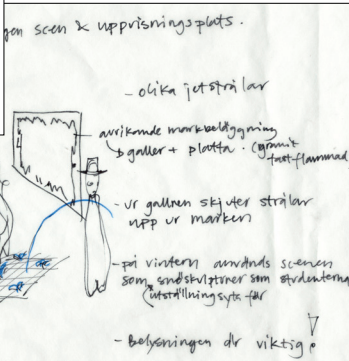 gen scen & uppvisningsplats.
- olika jetstrålar
avvikande markbeläggning
galler + platta. (granit
fast-flammad)
- ur gallren skjuter strålar
upp ur marken
- på vintern används scenen
som snöskulpturer som studenterna
(utställningsyta för
- Belysningen är viktig!